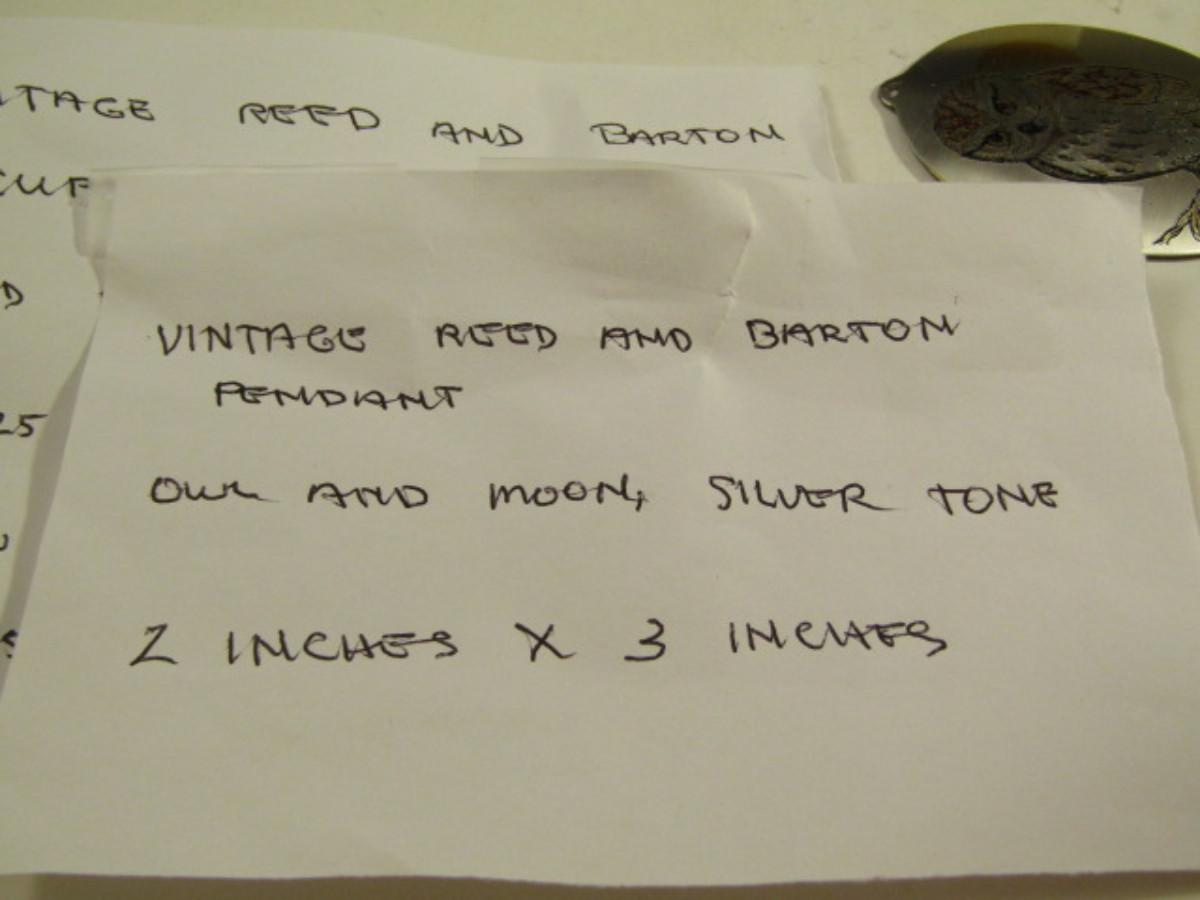 REED AND BARTON
25
VINTAGE REED AND BARTON
PENDANT
OWL AND MOON, SILVER TONE
2 INCHES X 3 INCHES